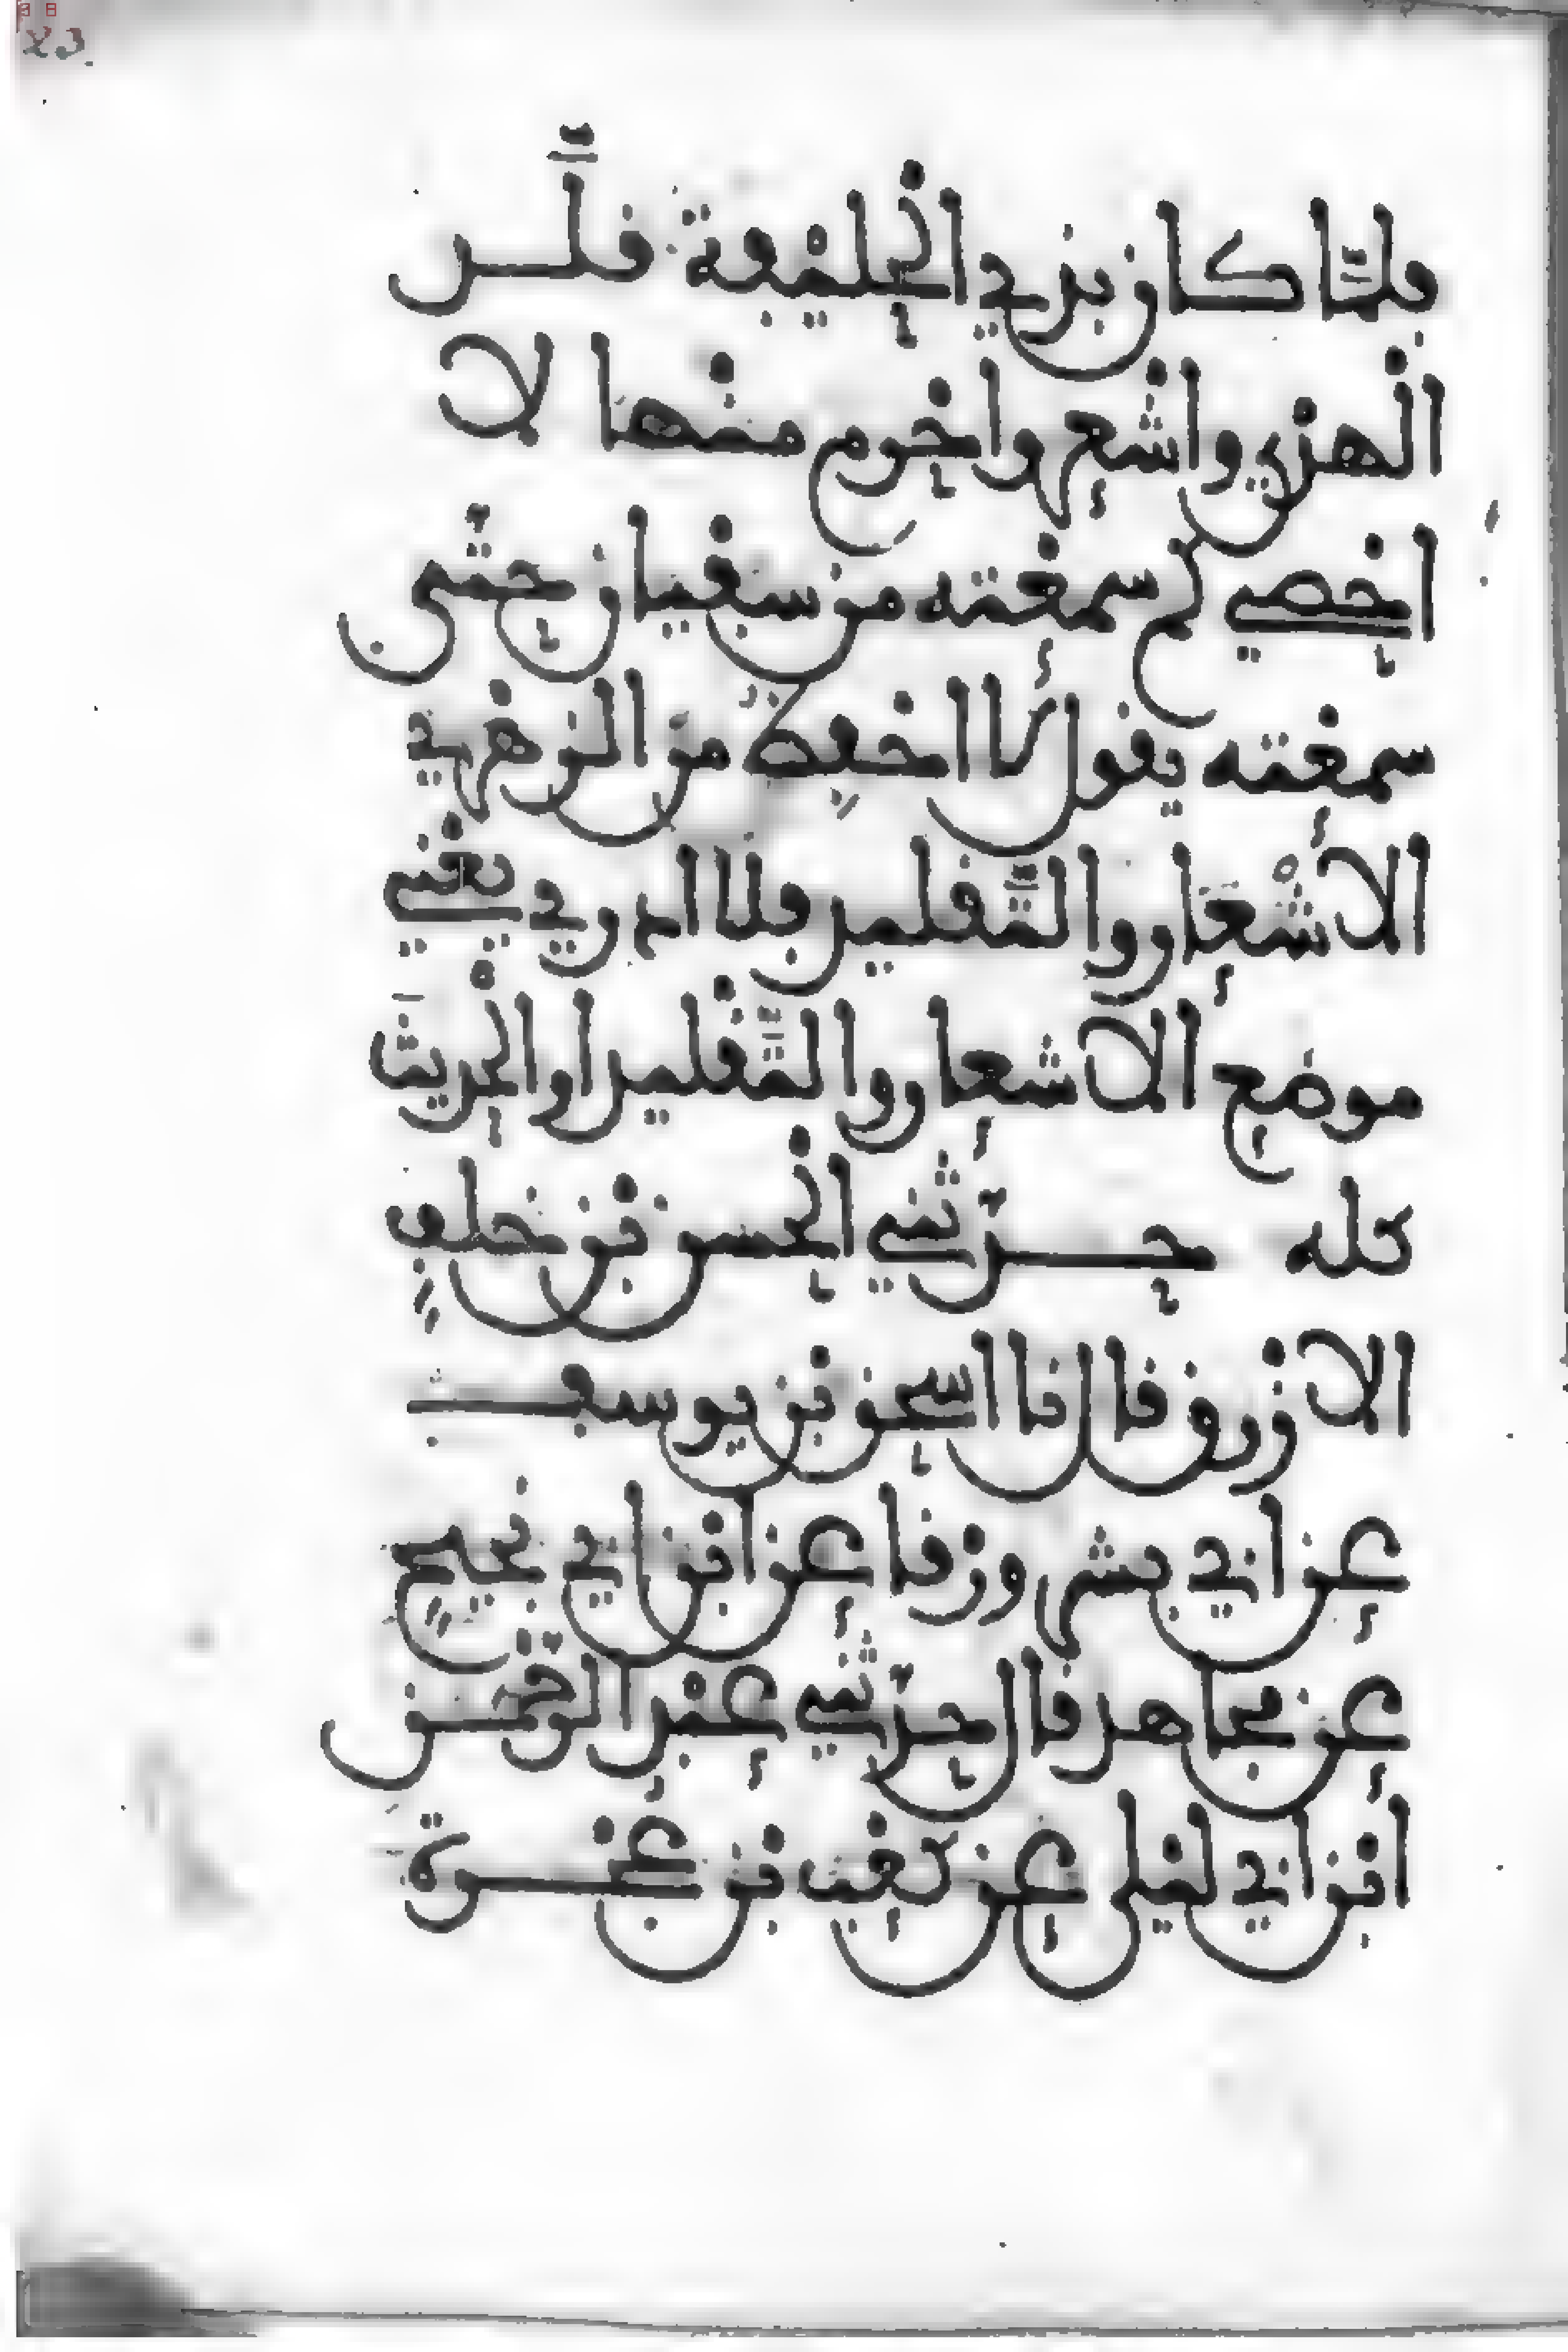 فلما كان بذي الحليفة قلد
الهدي واشعر واحرم منها لا
احصي كم سمعته من سفيان حتى
سمعته يقول لا احفظ من الزهري
الاشعار والتقليد فلا ادري يعني
موضع الاشعار والتقليد او الحديث
كله حدثني الحسن بن خلف
الازرق قال نا اسحق بن يوسف
عن ابي بشر ورقا عن ابن ابي نجيح
عن مجاهد قال حدثني عبد الرحمن
ابن ابي ليلى عن كعب بن عجرة